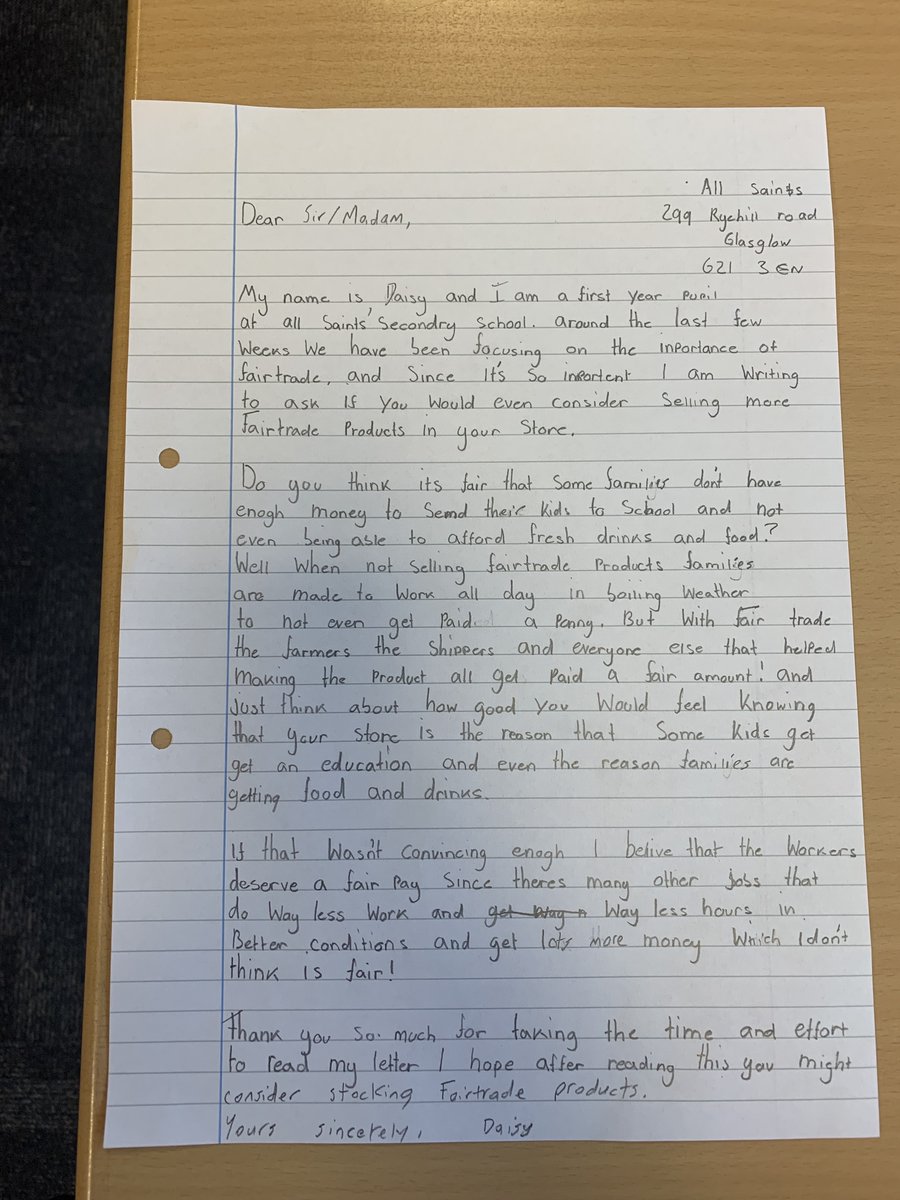 All Saints
Dear Sir/Madam,
299 Ryehill road
Glasglow
G21 3EN
My name is Daisy and I am a first year pupil
at all Saints' Secondry School. around the last few
Weeks We have been focusing on the inportance of
fairtrade, and Since it's So inportent I am Writing
to ask If You Would even Consider Selling more
Fairtrade Products in your Store.
Do you think its fair that Some families don't have
enogh money to Send their kids to School and not
even being able to afford fresh drinks and food?
Well When not Selling fairtrade Products families
are made to Work all day in boiling Weather
to not even get Paid a Penny. But With Fair trade
the farmers the Shippers and everyone else that helped
Making the Product all get Paid a fair amount! and
just think about how good you Would feel Knowing
that your Store is the reason that Some Kids get
get an education and even the reason families are
getting food and drinks.
If that Wasn't Convincing enogh I belive that the Workers
deserve a fair Pay Since theres many other Jobs that
do Way less Work and get way n Way less hours in
Better Conditions and get lots more money Which I don't
think is fair!
Thank you so much for taking the time and effort
to read my letter I hope after reading this you might
consider stocking Fairtrade products.
Yours sincerely, Daisy